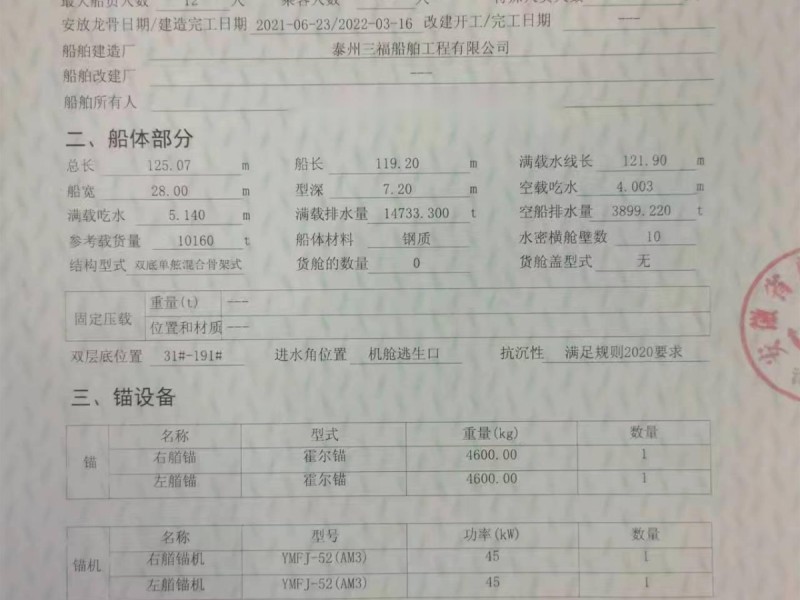 12 人
安放龙骨日期/建造完工日期 2021-06-23/2022-03-16 改建开工/完工日期 ---
船舶建造厂 泰州三福船舶工程有限公司
船舶改建厂 ---
船舶所有人
二、船体部分
总长 125.07 m 船长 119.20 m 满载水线长 121.90 m
船宽 28.00 m 型深 7.20 m 空载吃水 4.003 m
满载吃水 5.140 m 满载排水量 14733.300 t 空船排水量 3899.220 t
参考载货量 10160 t 船体材料 钢质 水密横舱壁数 10
结构型式 双底单舷混合骨架式 货舱的数量 0 货舱盖型式 无
固定压载 重量(t) ---
位置和材质 ---
双层底位置 31#-191# 进水角位置 机舱逃生口 抗沉性 满足规则2020要求
三、锚设备
锚 名称 型式 重量(kg) 数量
右艏锚 霍尔锚 4600.00 1
左艏锚 霍尔锚 4600.00 1
锚机 名称 型号 功率(kW) 数量
右艏锚机 YMFJ-52(AM3) 45 1
左艏锚机 YMFJ-52(AM3) 45 1
安徽省